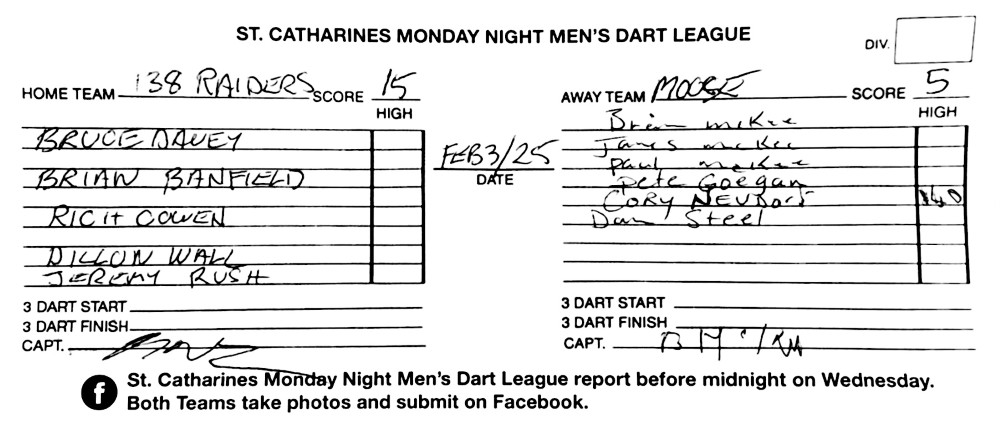 ST. CATHARINES MONDAY NIGHT MEN'S DART LEAGUE
DIV.
HOME TEAM 138 RAIDERS SCORE 15
HIGH
BRUCE DAVEY
BRIAN BANFIELD
RICH COWEN
DILLON WALL
JEREMY RUSH
3 DART START
3 DART FINISH
CAPT.
FEB 3/25
DATE
AWAY TEAM MOOSE SCORE 5
HIGH
Brian McKee
James McKee
Paul McKee
Pete Goegan
CORY 140
Dan Steel
3 DART START
3 DART FINISH
CAPT.
f St. Catharines Monday Night Men's Dart League report before midnight on Wednesday.
Both Teams take photos and submit on Facebook.